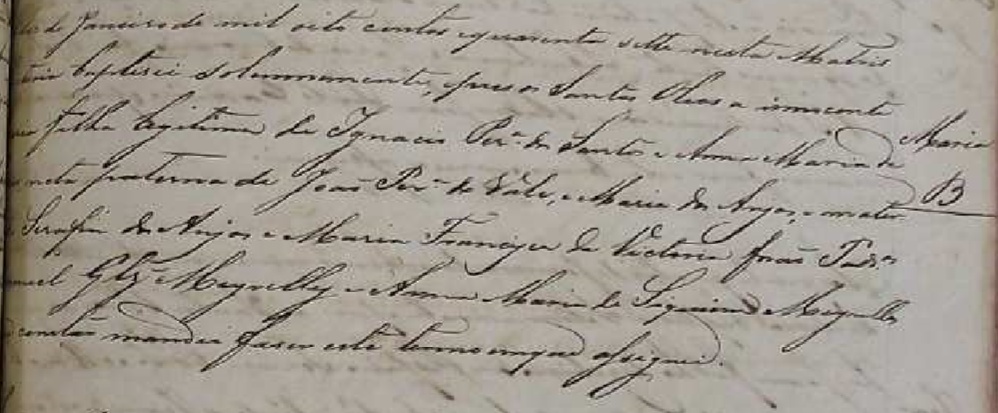 de Janeiro de mil oito centos equarenta e sette nesta Matris
baptisei solemnemente, epus os Santos Oleos a innocente
filha legitima de Ignacio Per.ª dos Santos e Anna Maria de
neta paterna de João Per.ª do Valle, e Maria dos Anjos, e mater
Serafim dos Anjos e Maria Francisca da Victoria forão Padr.os
Glz' e Anna Maria de Siqueira
constar mandei faser este termo em que assignei.
Maria
B